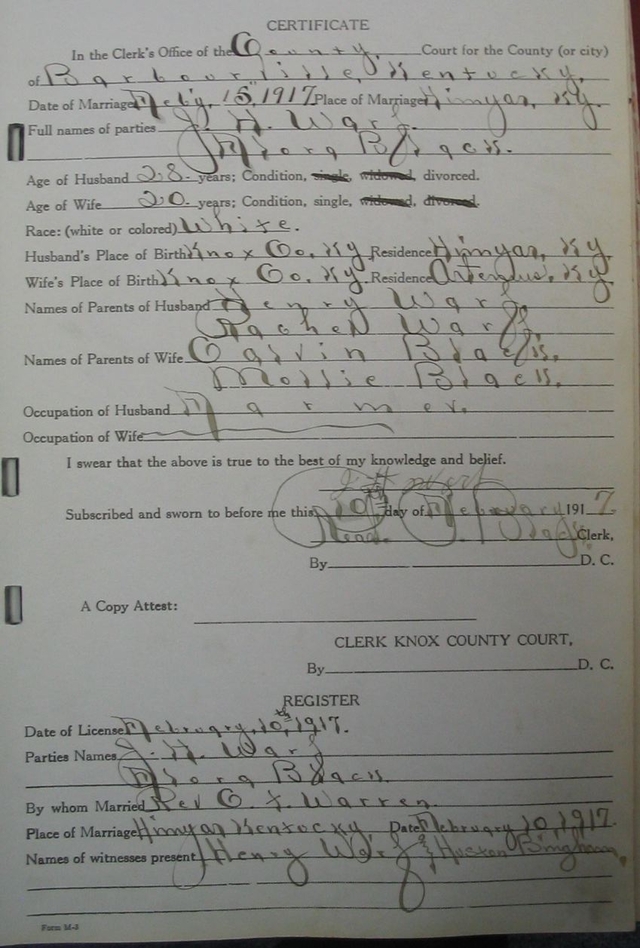 CERTIFICATE
In the Clerk's Office of the County, Court for the County (or city)
of Barbourville, Kentucky,
Date of Marriage Feb'y, 15, 1917 Place of Marriage Himyar, Ky.
Full names of parties J. H. Warf.
Flora Black.
Age of Husband 28 years; Condition, single, widowed, divorced.
Age of Wife 20 years; Condition, single, widowed, divorced.
Race: (white or colored) White.
Husband's Place of Birth Knox Co, Ky Residence Himyar, Ky
Wife's Place of Birth Knox Co. Ky Residence Artemus, Ky
Names of Parents of Husband Henry Warf,
Rachel Warf,
Names of Parents of Wife Calvin Black,
Mollie Black.
Occupation of Husband Farmer.
Occupation of Wife
I swear that the above is true to the best of my knowledge and belief.
Subscribed and sworn to before me this 10 day of February 1917
Read. Black Clerk,
By D. C.
A Copy Attest:
CLERK KNOX COUNTY COURT,
By D. C.
REGISTER
Date of License February, 10th, 1917.
Parties Names J. H. Warf
Flora Black.
By whom Married Rev Warren.
Place of Marriage Himyar Kentucky, Date February 10, 1917.
Names of witnesses present Henry Warf & Huston Bingham,
Form M-3